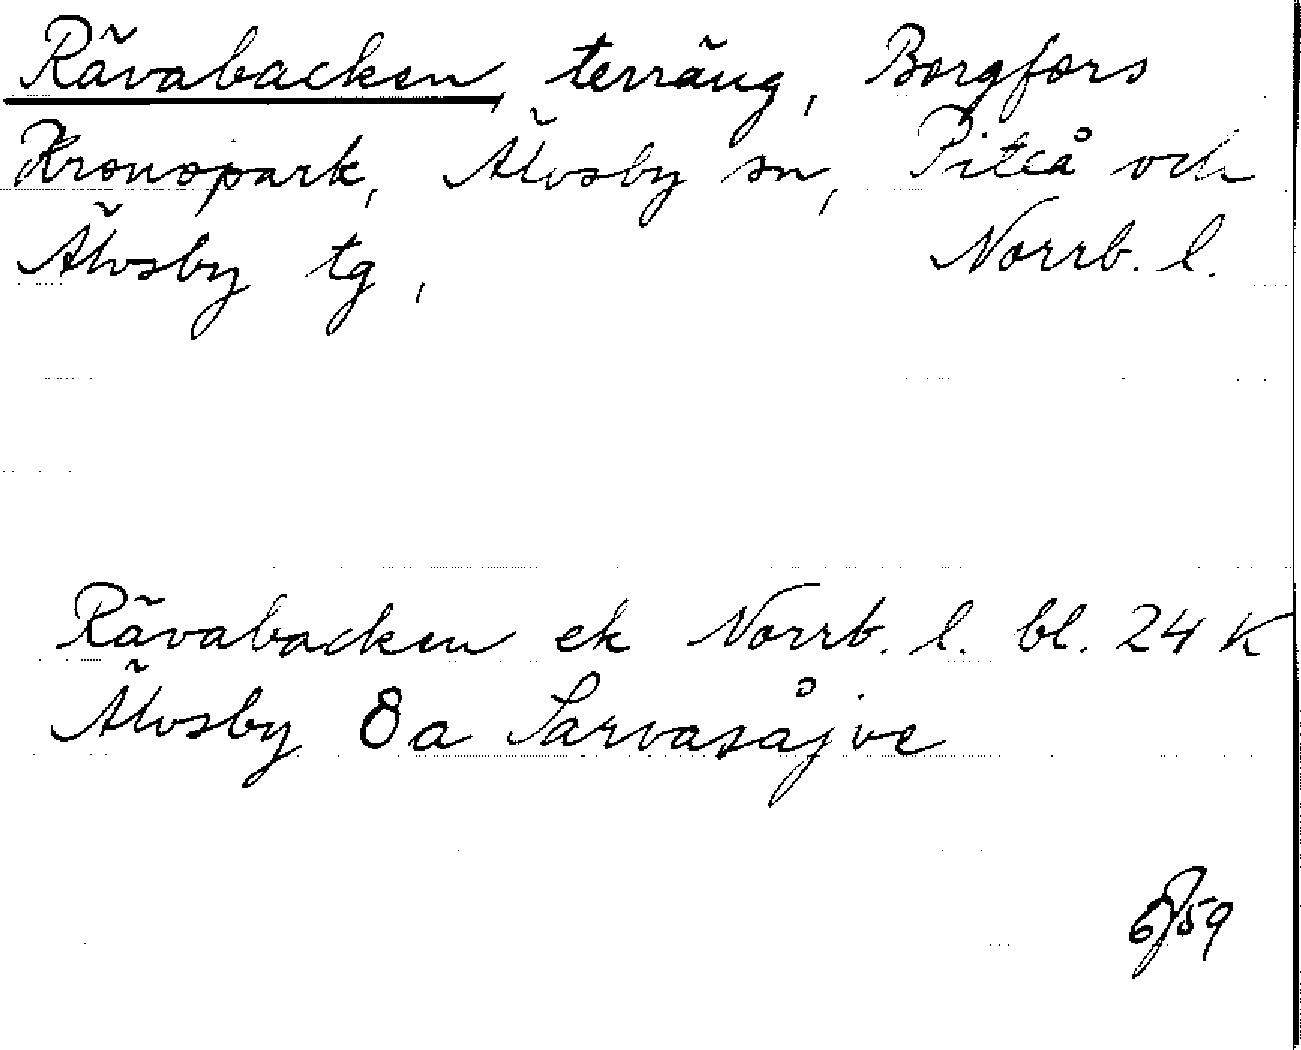 Rävabacken, terräng, Borgfors
Kronopark, Älvsby sn, Piteå och
Älvsby tg, Norrb. l.
Rävabacken ek Norrb. l. bl. 24 K
Älvsby 8a Sarvasåjve